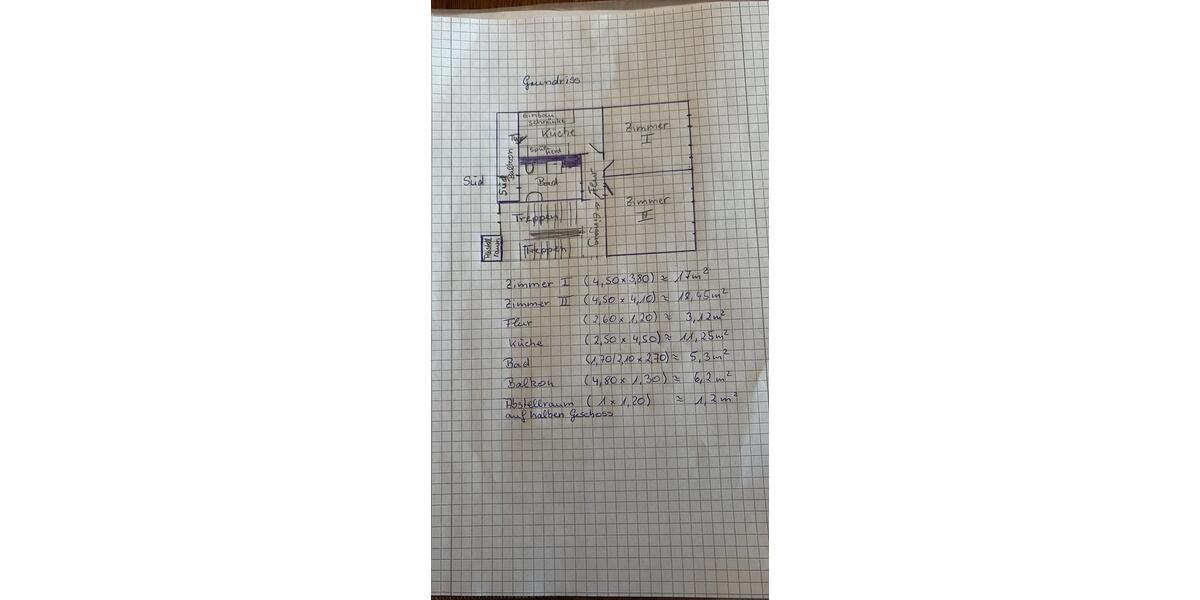 Grundriss
Einbau
schränke
Küche
Tür
Zimmer
I
Spüle Herd
Balkon
Süd
Süd
Bad
Flur
Zimmer
II
Treppen
Eingang
Abstell
raum
Treppen
Zimmer I (4,50 x 3,80) ≈ 17m²
Zimmer II (4,50 x 4,10) ≈ 18,45m²
Flur (2,60 x 1,20) ≈ 3,12m²
Küche (2,50 x 4,50) ≈ 11,25m²
Bad (1,70/2,10 x 2,70) ≈ 5,3m²
Balkon (4,80 x 1,30) ≈ 6,2m²
Abstellraum (1 x 1,20) ≈ 1,2m²
auf halben Geschoss